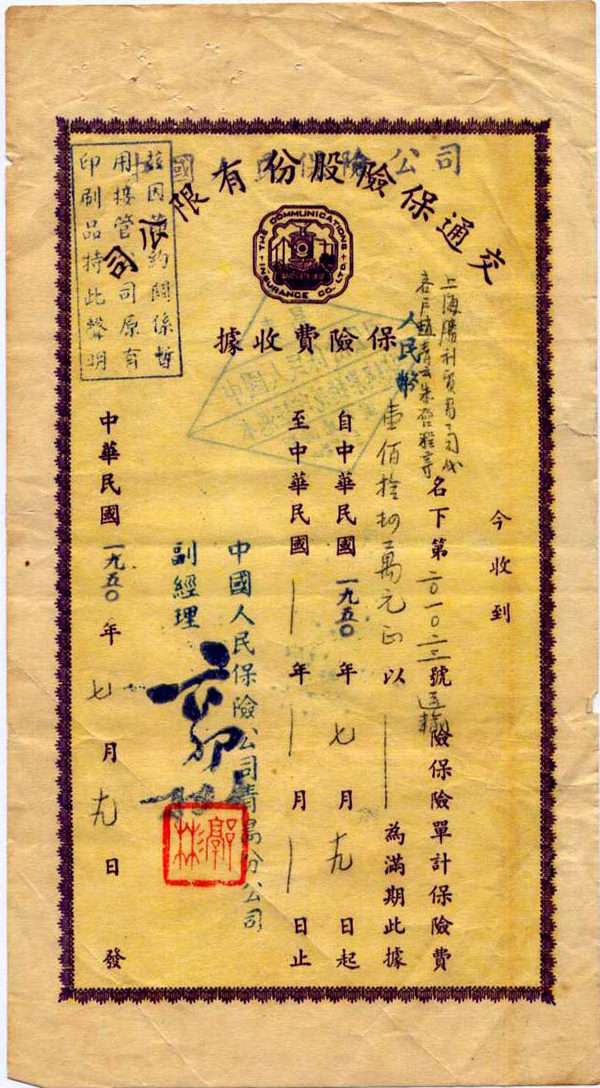 中國人民保險公司
交通保險股份有限公司
茲因簽約關係暫
用接管公司原有
印刷品特此聲明
THE COMMUNICATIONS INSURANCE CO. LTD
保險費收據
今收到
上海勝利貿易公司
名下第二〇一〇二三號運輸險保險單計保險費
人民幣壹佰拾萬元正以為滿期此據
自中華民國一九五〇年七月十九日起
至中華民國年月日止
中國人民保險公司青島分公司
副經理
中華民國一九五〇年七月十九日發